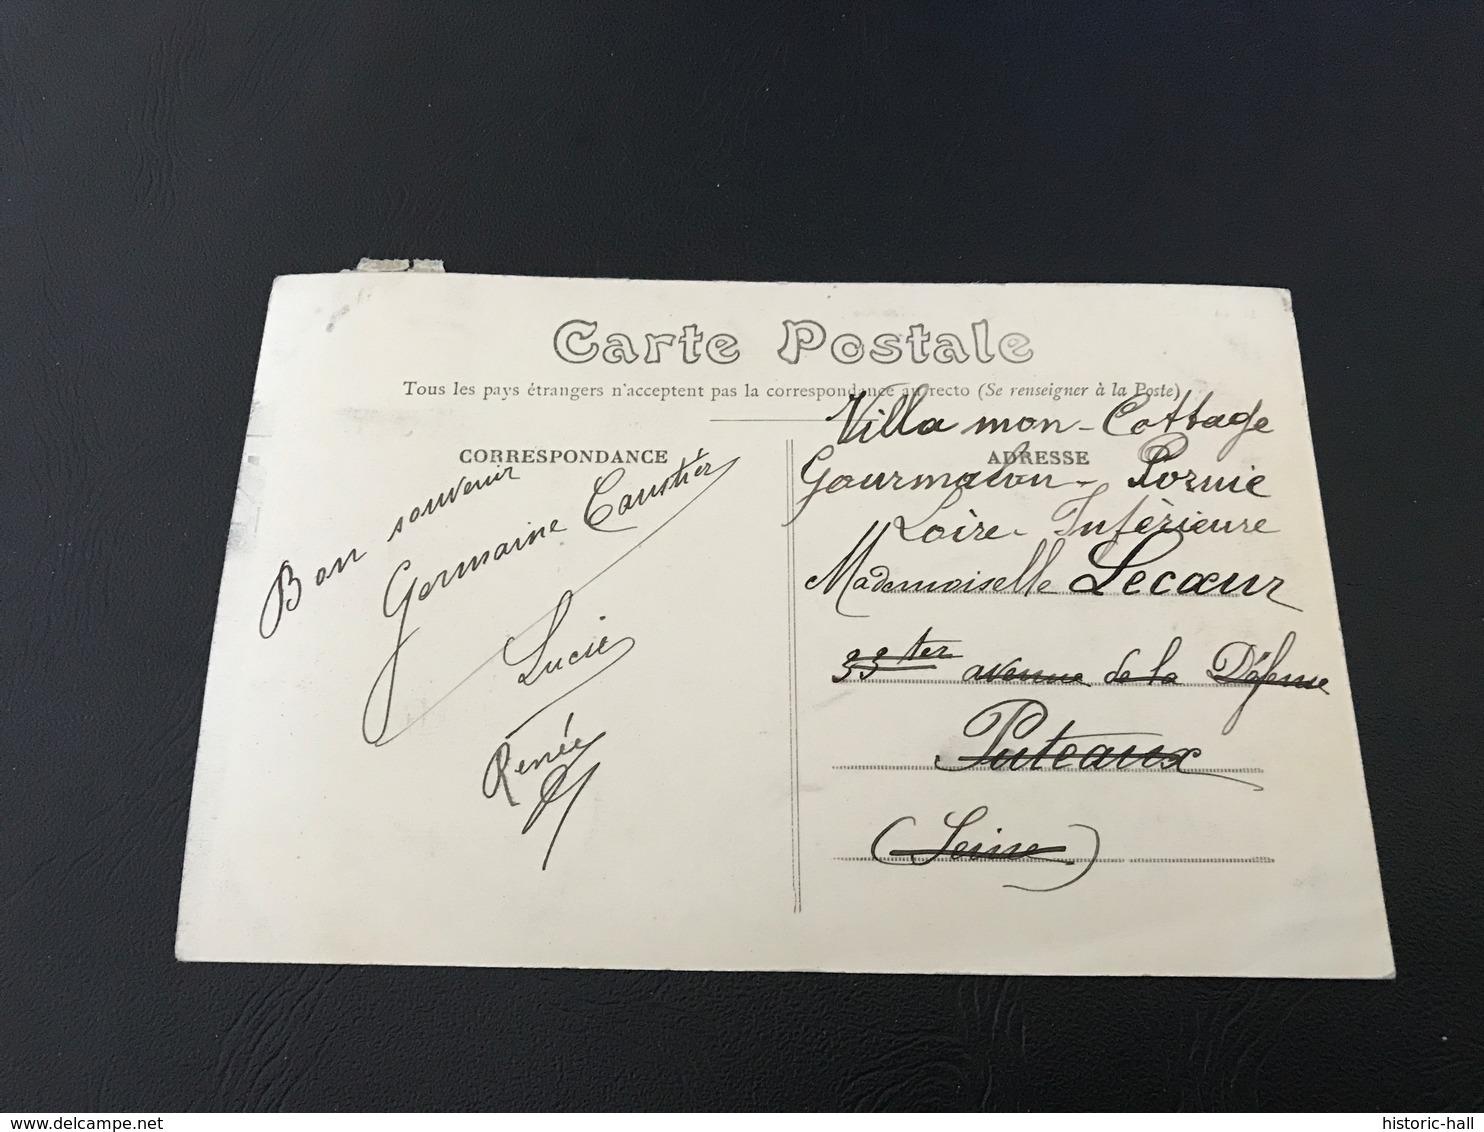 Carte Postale
Tous les pays étrangers n'acceptent pas la correspondance au recto (Se renseigner à la Poste)
CORRESPONDANCE
Bon souvenir
Germaine Caustier
Lucie
Renée
ADRESSE
Villa mon-Cottage
Gourmalon - Pornic
Loire-Inférieure
Mademoiselle Lecœur
33 ter avenue de la Défense
Puteaux
(Seine)
historic-hall
delcampe.net